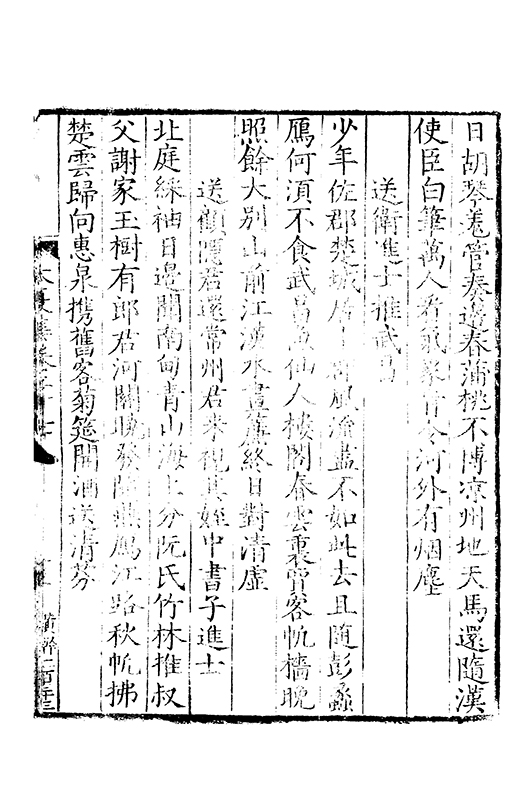 日胡琴羌管奏邊春蒲桃不博凉州地天馬還隨漢
使臣白筆萬人看氣象肯令河外有烟塵
送衛進士推武昌
少年佐郡楚城居十郡風流盡不如此去且隨彭蠡
鴈何須不食武昌魚仙人樓閣春雲裏賈客帆檣晚
照餘大别山前江漢水畫簾終日對清虛
送顧隱君還常州君来視其姪中書子進士
北庭綵袖日邊聞南甸青山海上分阮氏竹林推叔
父謝家玉樹有郎君河關曉發隨燕鴈江路秋帆拂
楚雲歸向惠泉携舊客菊筵開酒送清芬